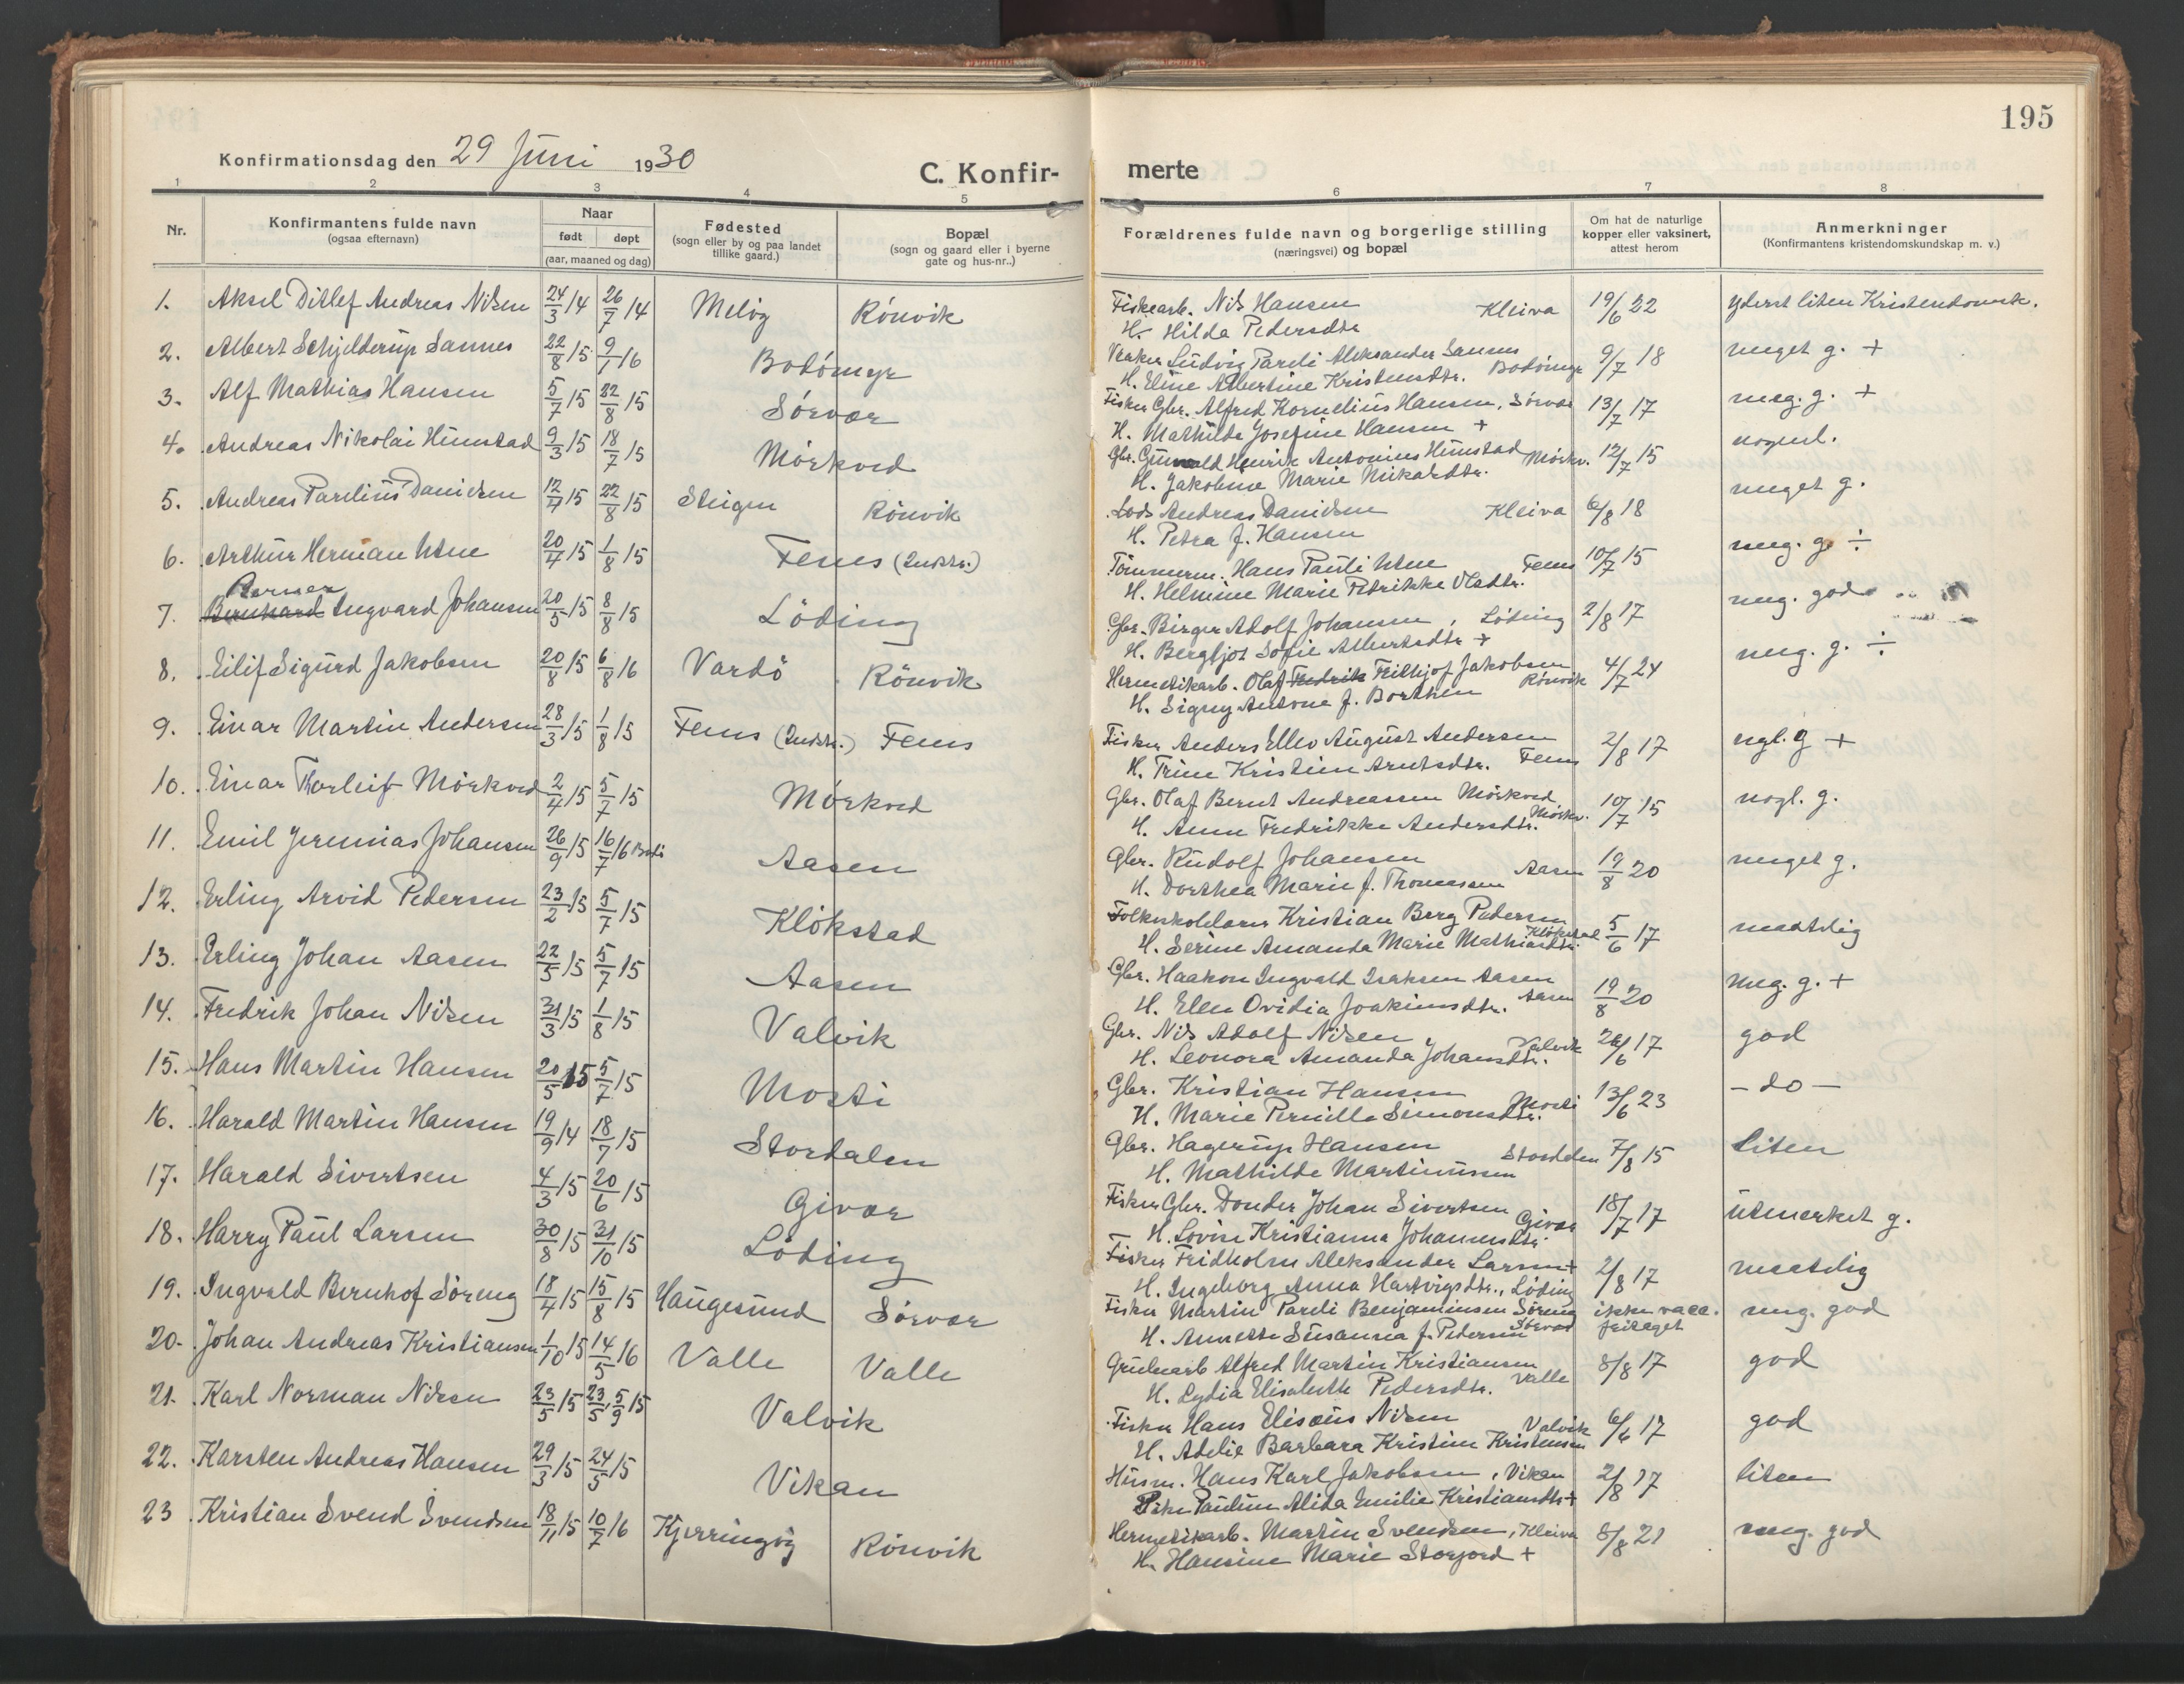 195
Konfirmationsdag den 29 Juni 1930
C. Konfir-
merte
1 2 3 4 5 6 7 8
Nr.
Konfirmantens fulde navn
(ogsaa efternavn)
Naar
født døpt
(aar, maaned og dag)
Fødested
(sogn eller by og paa landet
tillike gaard.)
Bopæl
(sogn og gaard eller i byerne
gate og hus-nr..)
Forældrenes fulde navn og borgerlige stilling
(næringsvei) og bopæl
Om hat de naturlige
kopper eller vaksinert,
attest herom
Anmerkninger
(Konfirmantens kristendomskundskap m. v.)
1. Aksel Ditlef Andreas Nilsen 24/3 14 26/7 14 Meløy Rönvik Fiskearb. Nils Hansen Kleiva 19/6 22 yderst liten Kristendomsk.
H. Hilda Pedersdtr
2. Albert Schjelderup Sannes 22/8 15 9/1 16 Bodömyr Ludvig Pareli Aleksander Sannes Bodömyr 9/7 18 meget g. +
H. Eline Albertine Kristensdtr.
3. Alf Mathias Hansen 5/7 15 22/8 15 Sörvær Fisker Gbr. Alfred Kornelius Hansen, Sörvær 13/7 17 meg. g. +
H. Mathilde Josefine Hansen +
4. Andreas Nikolai Hunstad 9/3 15 18/7 15 Mörkved Gbr. Gunvald Henrik Antonius Hunstad Mörkv. 12/7 15 nogenl.
H. Jakobine Marie Mikalsdtr.
5. Andreas Parelius Danielsen 12/4 15 22/8 15 Steigen Rönvik Lods Andreas Danielsen Kleiva 6/8 18 meget g.
H. Petra f. Hansen
6. Arthur Herman Utne 20/4 15 1/8 15 Fenes (Indstr.) Tömmerm. Hans Pauli Utne Fenes 10/7 15 meg. g. ÷
H. Helmine Marie Petrikke Olsdtr.
7. Berner
Bernhard Ingvard Johansen 20/5 15 8/8 15 Löding Gbr. Birger Adolf Johansen, Löding 2/8 17 meg. god
H. Bergljot Sofie Albertsdtr +
8. Eilif Sigurd Jakobsen 20/8 15 6/8 16 Vardö Rönvik Hermetikarb. Olaf Fredrik Frithjof Jakobsen Rönvik 4/7 24 meg. g. ÷
H. Signy Antone f. Borthen
9. Einar Martin Andersen 28/3 15 1/8 15 Fenes (Indstr.) Fenes Fisker Anders Elleo August Andersen 2/8 17 ngl. g +
H. Trine Kristine Arntsdtr. Fenes
10. Einar Thorleif Mörkved 2/4 15 5/7 15 Mörkved Gbr. Olaf Bernt Andreassen Mörkved 10/7 15 nogl. g.
H. Anne Fredrikke Andersdtr. Mörkv.
11. Emil Jeremias Johansen 26/9 15 16/7 16 Bodö Aasen Gbr. Rudolf Johansen Aasen 19/8 20 meget g.
H. Dorthea Marie f. Thomassen
12. Erling Arvid Pedersen 23/2 15 5/7 15 Klökstad Folkeskolelærer Kristian Berg Pedersen Klökstad 5/6 17 maatelig
H. Serine Amanda Marie Mathiasdtr.
13. Erling Johan Aasen 22/5 15 5/7 15 Aasen Gbr. Haakon Ingvald Isaksen Aasen 19/8 20 meg. g. +
H. Ellen Ovidia Joakimsdtr. Aasen
14. Fredrik Johan Nilsen 31/3 15 1/8 15 Valvik Gbr. Nils Adolf Nilsen Valvik 26/6 17 god
H. Leonora Amanda Johansdtr.
15. Hans Martin Hansen 20/5 15 5/7 15 Mosti Gbr. Kristian Hansen Mosti 13/6 23 – do –
H. Marie Pernille Simonsdtr.
16. Harald Martin Hansen 19/9 14 18/7 15 Stordalen Gbr. Hagerup Hansen Stordalen 7/8 15 liten
H. Mathilde Martinussen
17. Harald Sivertsen 4/3 15 20/6 15 Givær Fisker Gbr. Donder Johan Sivertsen Givær 18/7 17 utmerket g.
H. Lovise Kristianna Johannesdtr.
18. Harry Paul Larsen 30/8 15 31/10 15 Löding Fisker Fridholm Aleksander Larsen + 2/8 17 maatelig
H. Ingeborg Anna Hartvigsdtr., Löding
19. Ingvald Bernhof Söreng 18/4 15 15/8 15 Haugesund Sörvær Fisker Martin Pareli Benjaminsen Söreng ikke vacc. meg. god
H. Annette Susanna f. Pedersen Sörvær fritaget
20. Johan Andreas Kristiansen 1/10 15 14/5 16 Valle Valle Grubearb Alfred Martin Kristiansen Valle 8/8 17 god
H. Lydia Elisabeth Pedersdtr.
21. Karl Norman Nilsen 23/5 15 23/5, 5/9 15 Valvik Fisker Hans Elisæus Nilsen Valvik 6/6 17 god
H. Adelie Barbara Kristine Kristensen
22. Karsten Andreas Hansen 29/3 15 24/5 15 Vikan Husm. Hans Karl Jakobsen, Vikan 2/8 17 liten
Pike Pauline Alida Emilie Kristiansdtr +
23 Kristian Svend Svendsen 18/11 15 10/7 16 Kjerringöy Rönvik Hermetikarb. Martin Svendsen, Kleiva 8/8 21 meg. god
H. Hansine Marie Storjord +